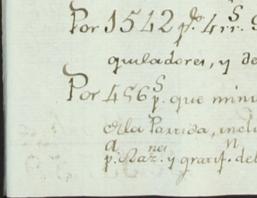 Por 1542 p.s 4 rr.s
quiladores, y de
Por 456 p.s que minis
dla Partida, inclu
p.a Raz.nes y gratif.n del